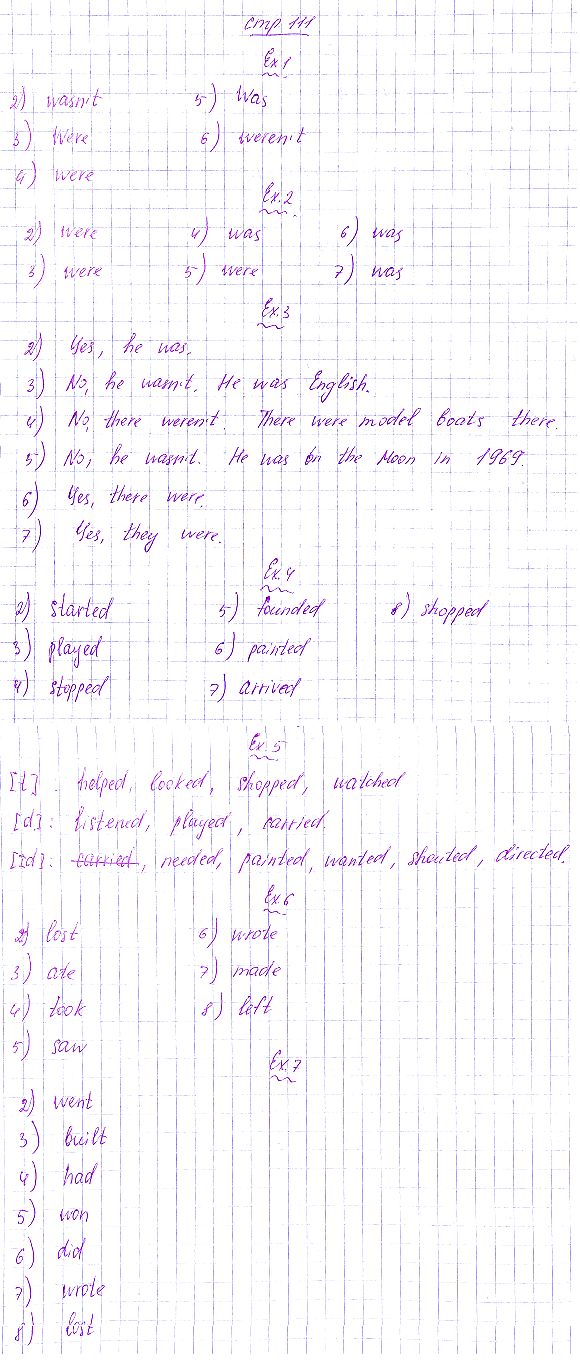 стр 111
Ex 1
2) wasn't 5) Was
3) Were 6) weren't
4) were
Ex. 2
2) were 4) was 6) was
3) were 5) were 7) was
Ex. 3
2) Yes, he was.
3) No, he wasn't. He was English.
4) No, there weren't. There were model boats there.
5) No, he wasn't. He was on the Moon in 1969.
6) Yes, there were.
7) Yes, they were.
Ex. 4
2) started 5) founded 8) shopped
3) played 6) painted
4) stopped 7) arrived
Ex. 5
[t] : helped, looked, shopped, watched
[d] : listened, played, carried.
[Id] : carried, needed, painted, wanted, shouted, directed.
Ex 6
2) lost 6) wrote
3) ate 7) made
4) took 8) left
5) saw
Ex. 7
2) went
3) built
4) had
5) won
6) did
7) wrote
8) lost